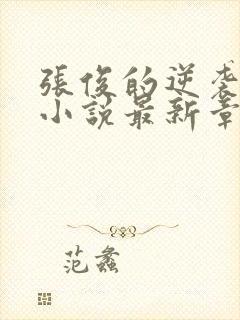 張俊的逆袭
小説最新章
范蠡